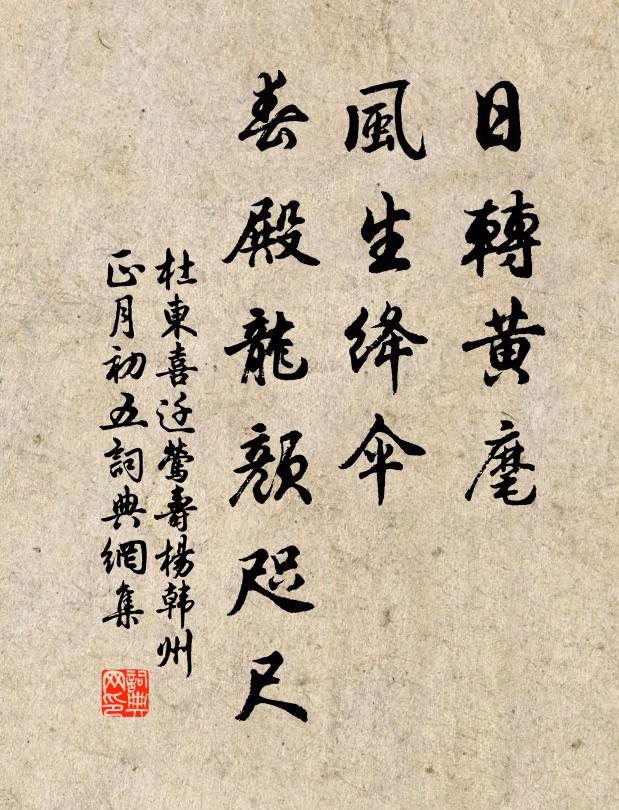 日轉黃麾
風生絳傘
春殿龍顏咫尺
杜東喜迁鶯壽楊韩州
正月初五詞典網集
詞典
网印